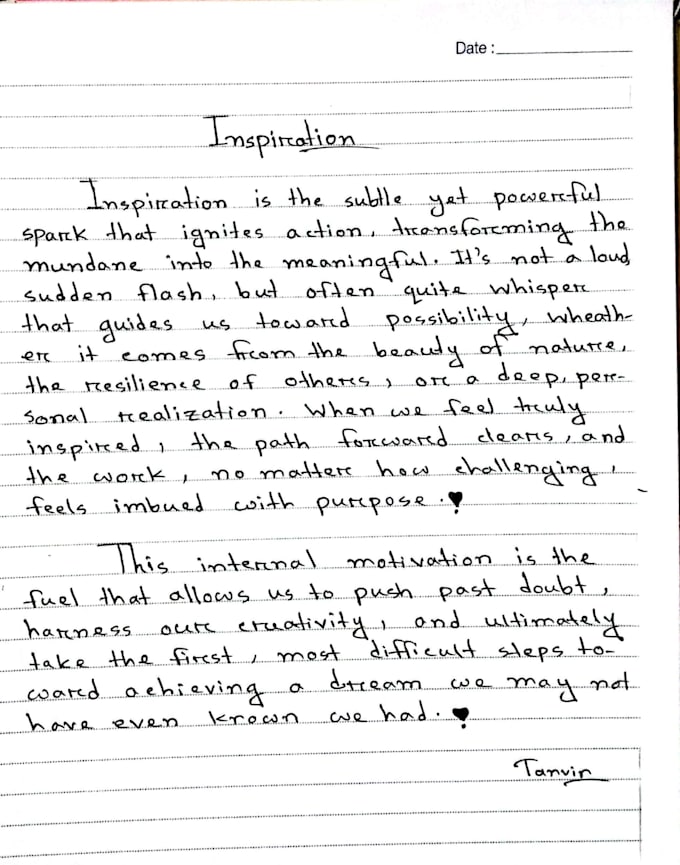 Date :
Inspiration
Inspiration is the subtle yet powerful
spark that ignites action, transforming the
mundane into the meaningful. It's not a loud
sudden flash, but often quite whisper
that guides us toward possibility, wheath-
er it comes from the beauty of nature,
the resilience of others, or a deep, per-
sonal realization. When we feel truly
inspired, the path forward clears, and
the work, no matter how challenging,
feels imbued with purpose.
This internal motivation is the
fuel that allows us to push past doubt,
harness our creativity, and ultimately
take the first, most difficult steps to-
ward achieving a dream we may not
have even known we had.
Tanvir